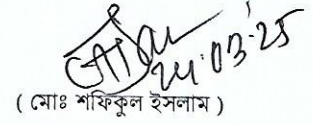 24.03.25
( মোঃ শফিকুল ইসলাম )